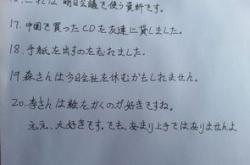 16. これは明日会議で使う資料です。
17. 中国で買ったCDを友達に貸しました。
18. 手紙を出すのを忘れました。
19. 森さんは今日会社を休むかもしれません。
20. 李さんは絵をかくのが好きですね。
ええ、大好きです。でも、あまり上手ではありませんよ